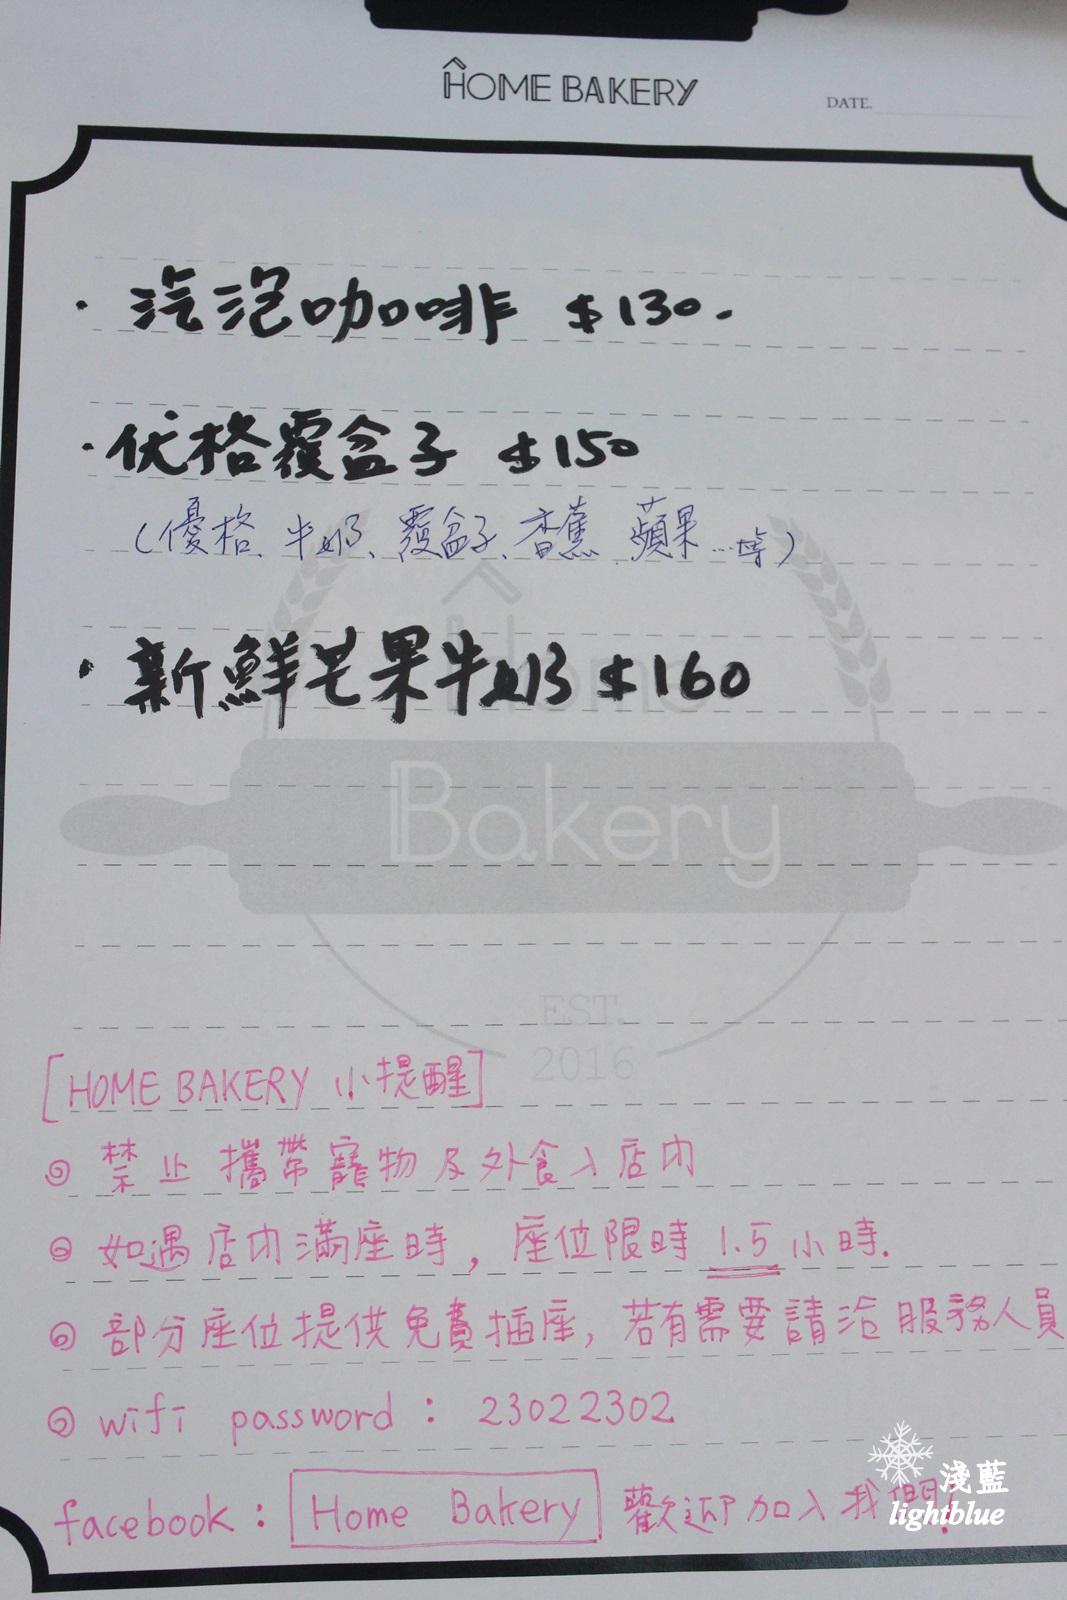 HOME BAKERY
DATE.
· 汽泡咖啡 $130.
· 优格覆盆子 $150
(優格、牛奶、覆盆子、香蕉、蘋果...等)
· 新鮮芒果牛奶 $160
Home
Bakery
EST.
2016
[HOME BAKERY 小提醒]
◎ 禁止攜帶寵物及外食入店內
◎ 如遇店內滿座時, 座位限時 1.5 小時.
◎ 部分座位提供免費插座, 若有需要請洽服務人員
◎ wifi password : 23022302
facebook : Home Bakery 歡迎加入我們!
淺藍
lightblue